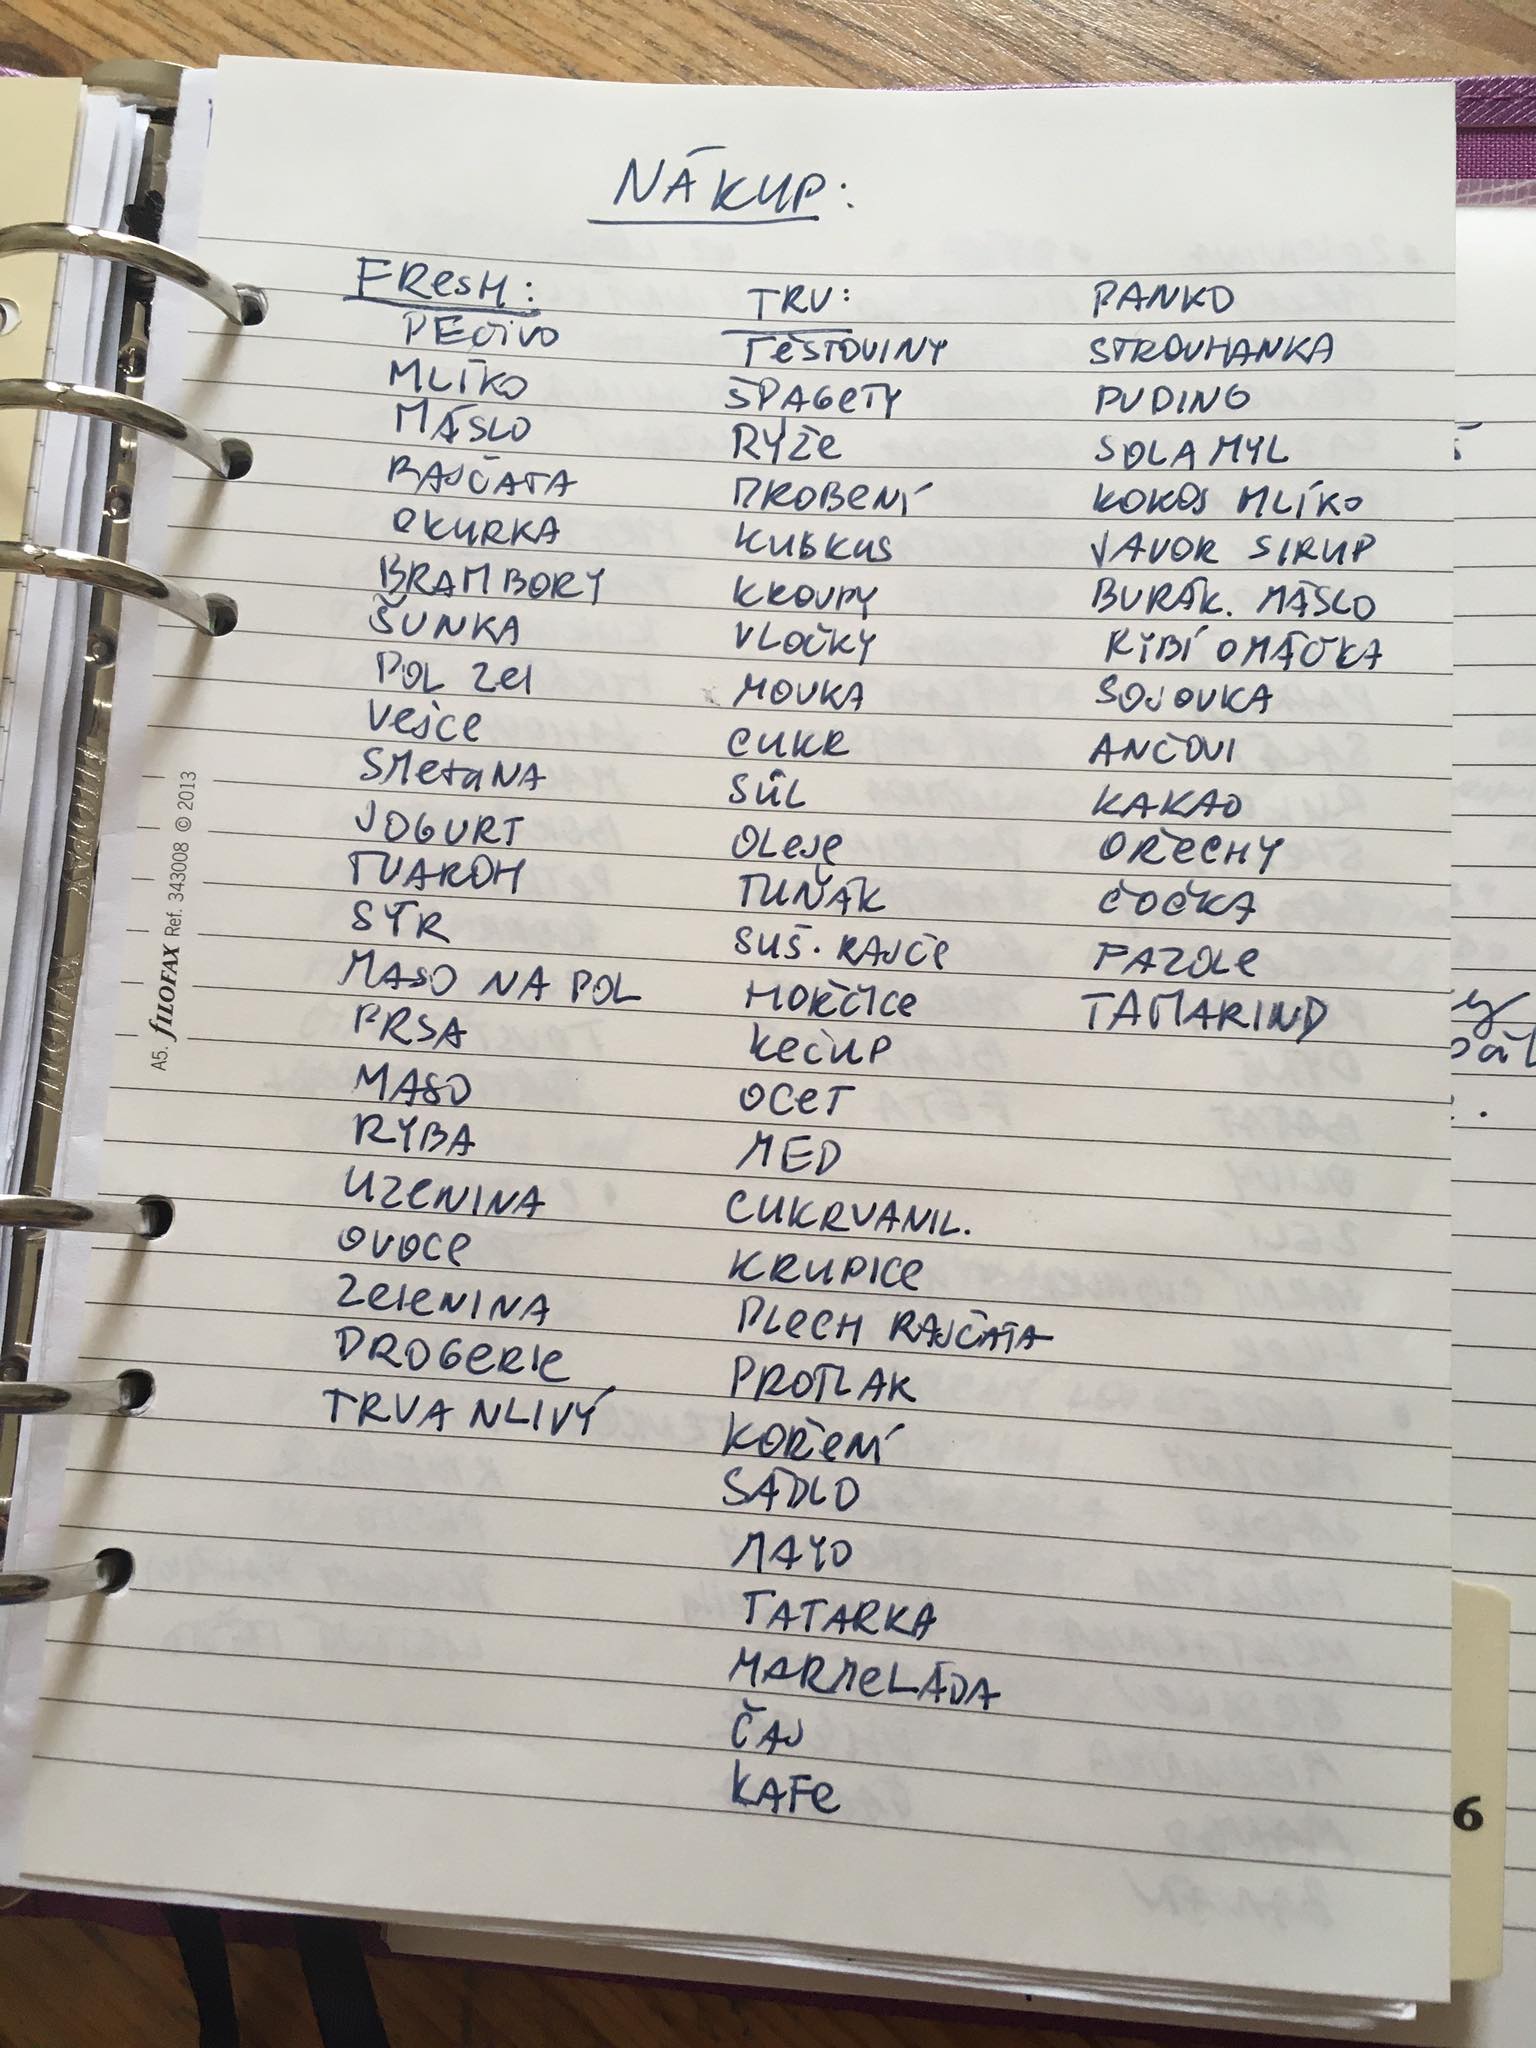 NÁKUP:
FResH:
PEČIVO
MLÍKO
MÁSLO
RAJČATA
OKURKA
BRAMBORY
ŠUNKA
POL ZEL
VeJCe
SMetaNA
JOGURT
TVAROH
SÝR
MASO NA POL
PRSA
MASO
RYBA
UZENINA
OVOCe
ZeleNINA
DROGeRIe
TRVANLIVÝ
TRV:
TĚSTOVINY
ŠPAGeTY
RÝŽe
DROBeNÍ
KUSKUS
KROUPY
VLOČKY
MOUKA
CUKR
SŮL
OLeJe
TUŇÁK
SUŠ. RAJČe
HOŘČICe
KeČUP
OCeT
MED
CUKRVANIL.
KRUPICe
PLeCH RAJČATA
PROTLAK
KOŘeNÍ
SÁDLO
MAYO
TATARKA
MARMeLÁDA
ČAJ
KAFe
PANKO
STROUHANKA
PUDING
SOLAMYL
KOKOS MLÍKO
JAVOR SIRUP
BURÁK. MÁSLO
RYBÍ OMÁČKA
SOJOVKA
ANČOVI
KAKAO
OŘeCHY
ČOČKA
FAZOLe
TAMARIND
A5. fILOFAX Ref. 343008 © 2013
6